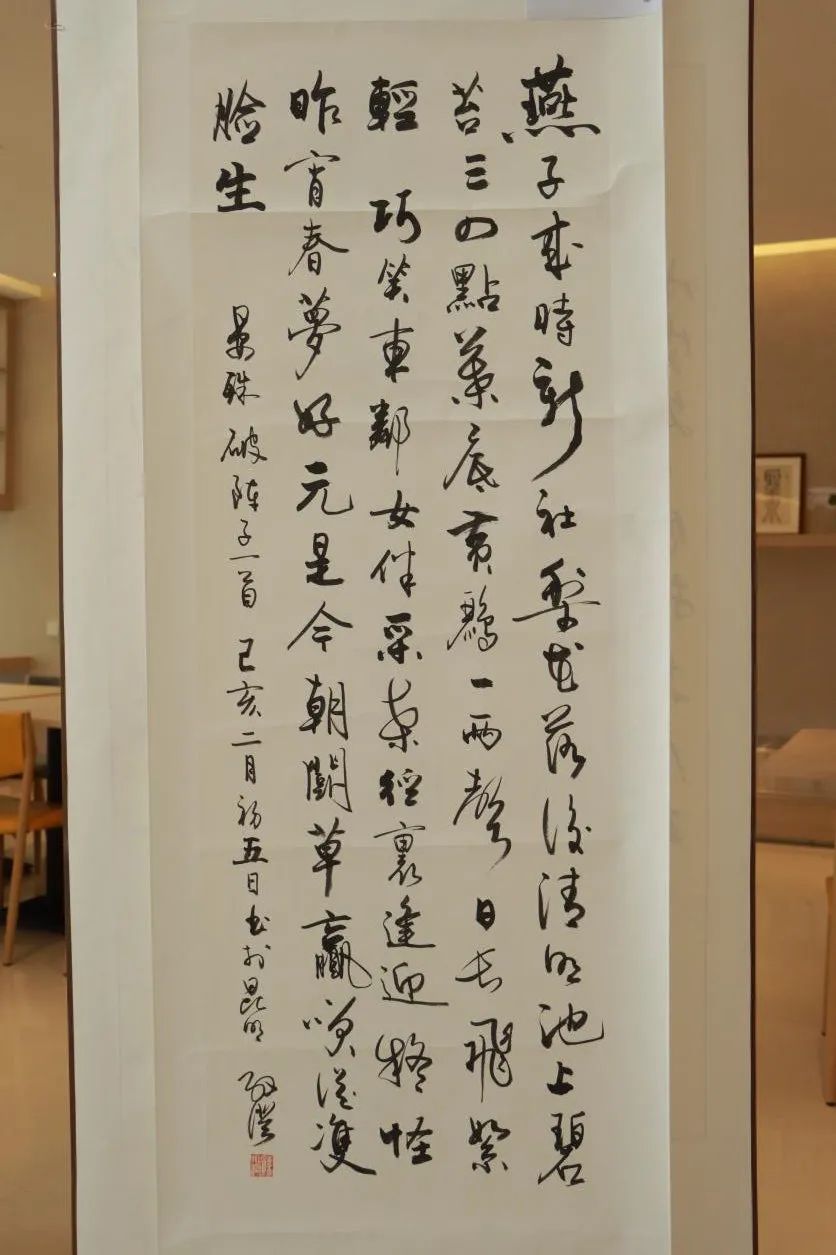 燕子来時新社梨花落後清明池上碧
苔三四點葉底黃鸝一兩聲 日長飛絮
輕 巧笑東鄰女伴采桑徑裏逢迎 疑怪
昨宵春夢好元是今朝鬭草贏 笑從雙
脸生
晏殊破陣子一首 己亥二月初五日書於昆明